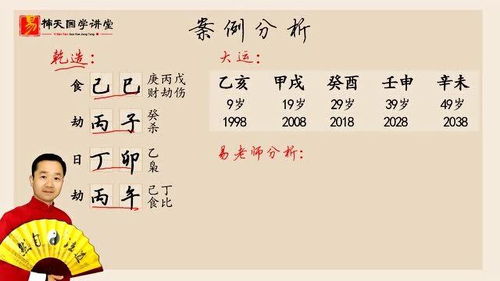 易 择天国学讲堂
案例分析
乾造：
食 己 巳 庚丙戊
财劫伤
劫 丙 子 癸
杀
日 丁 卯 乙
枭
劫 丙 午 己丁
食比
大运：
乙亥 甲戌 癸酉 壬申 辛未
9岁 19岁 29岁 39岁 49岁
1998 2008 2018 2028 2038
易老师分析：